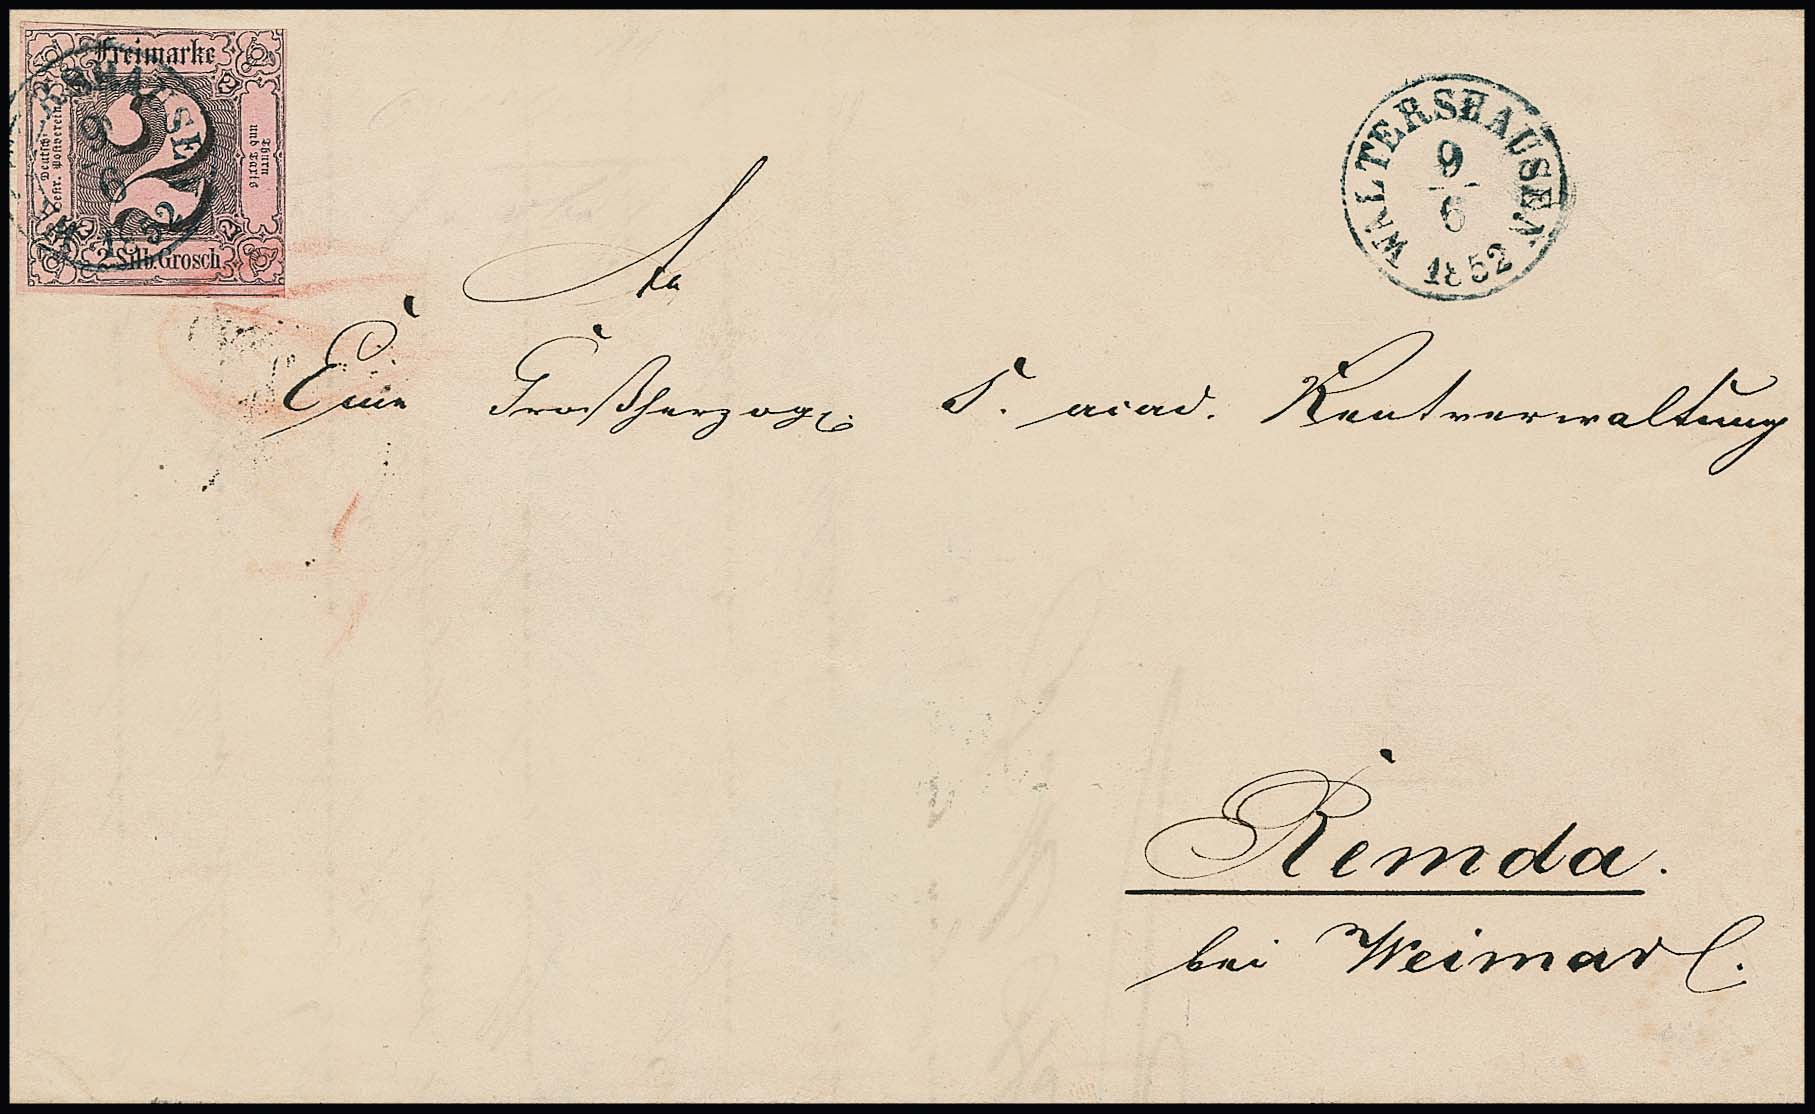 Freimarke
Deutsch-
Oestr. Postverein
2
Thurn
und Taxis
2 Silb. Grosch
9
6
1852
WALTERSHAUSEN
9
6
1852
An
Eine Großherzogl. S. acad. Rentverwaltung
Remda.
bei Weimar